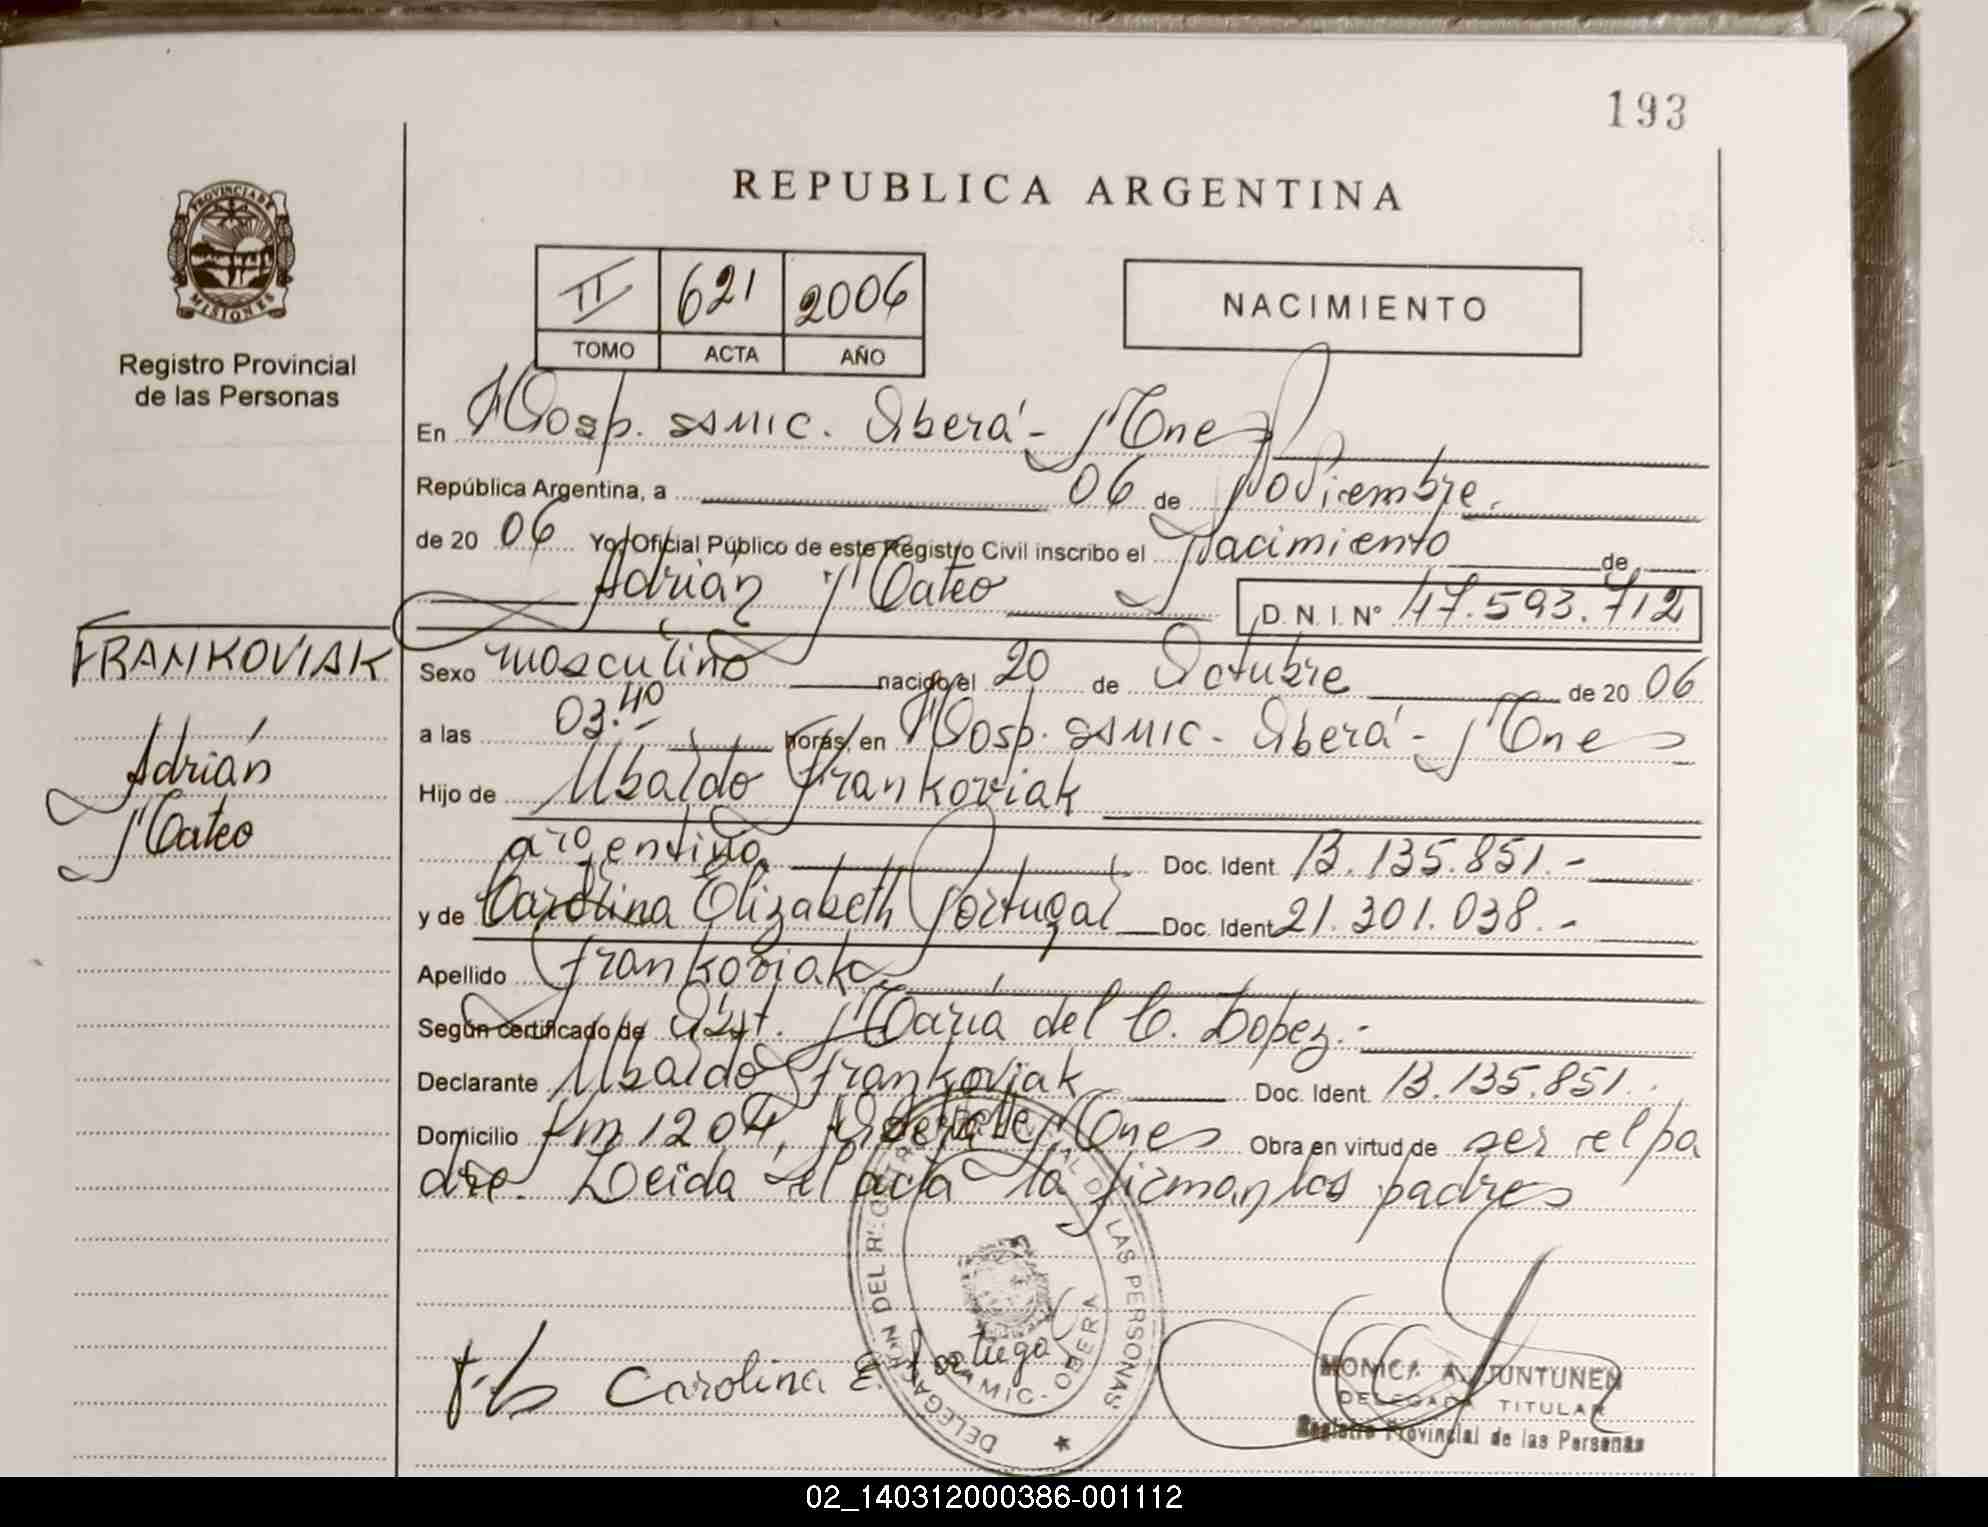 193
REPUBLICA ARGENTINA
PROVINCIA DE MISIONES
Registro Provincial
de las Personas
II 621 2006
TOMO ACTA AÑO
NACIMIENTO
En Hosp. SAMIC. Oberá - Mnes
República Argentina, a 06 de Noviembre.
de 20 06 Yo, Oficial Público de este Registro Civil inscribo el Nacimiento de
Adrián Mateo D. N. I. Nº 47.593.712
FRANKOVIAK
Adrián
Mateo
Sexo masculino nacido el 20 de Octubre de 20 06
a las 03.40 horas, en Hosp. SAMIC - Oberá - Mnes
Hijo de Ubaldo Frankoviak
argentino Doc. Ident. 13.135.851.-
y de Carolina Elizabeth Portugal Doc. Ident. 21.301.038.-
Apellido Frankoviak
Según certificado de Obst. María del C. Lopez.-
Declarante Ubaldo Frankoviak Doc. Ident. 13.135.851.
Domicilio Km 1204, Mnes Obra en virtud de ser el pa
dre. Leída el acta la firman los padres
Carolina E. Portugal
DELEGACIÓN DEL REGISTRO PROVINCIAL DE LAS PERSONAS
SAMIC - OBERA
MONICA A. JUNTUNEN
DELEGADA TITULAR
Registro Provincial de las Personas
02_140312000386-001112